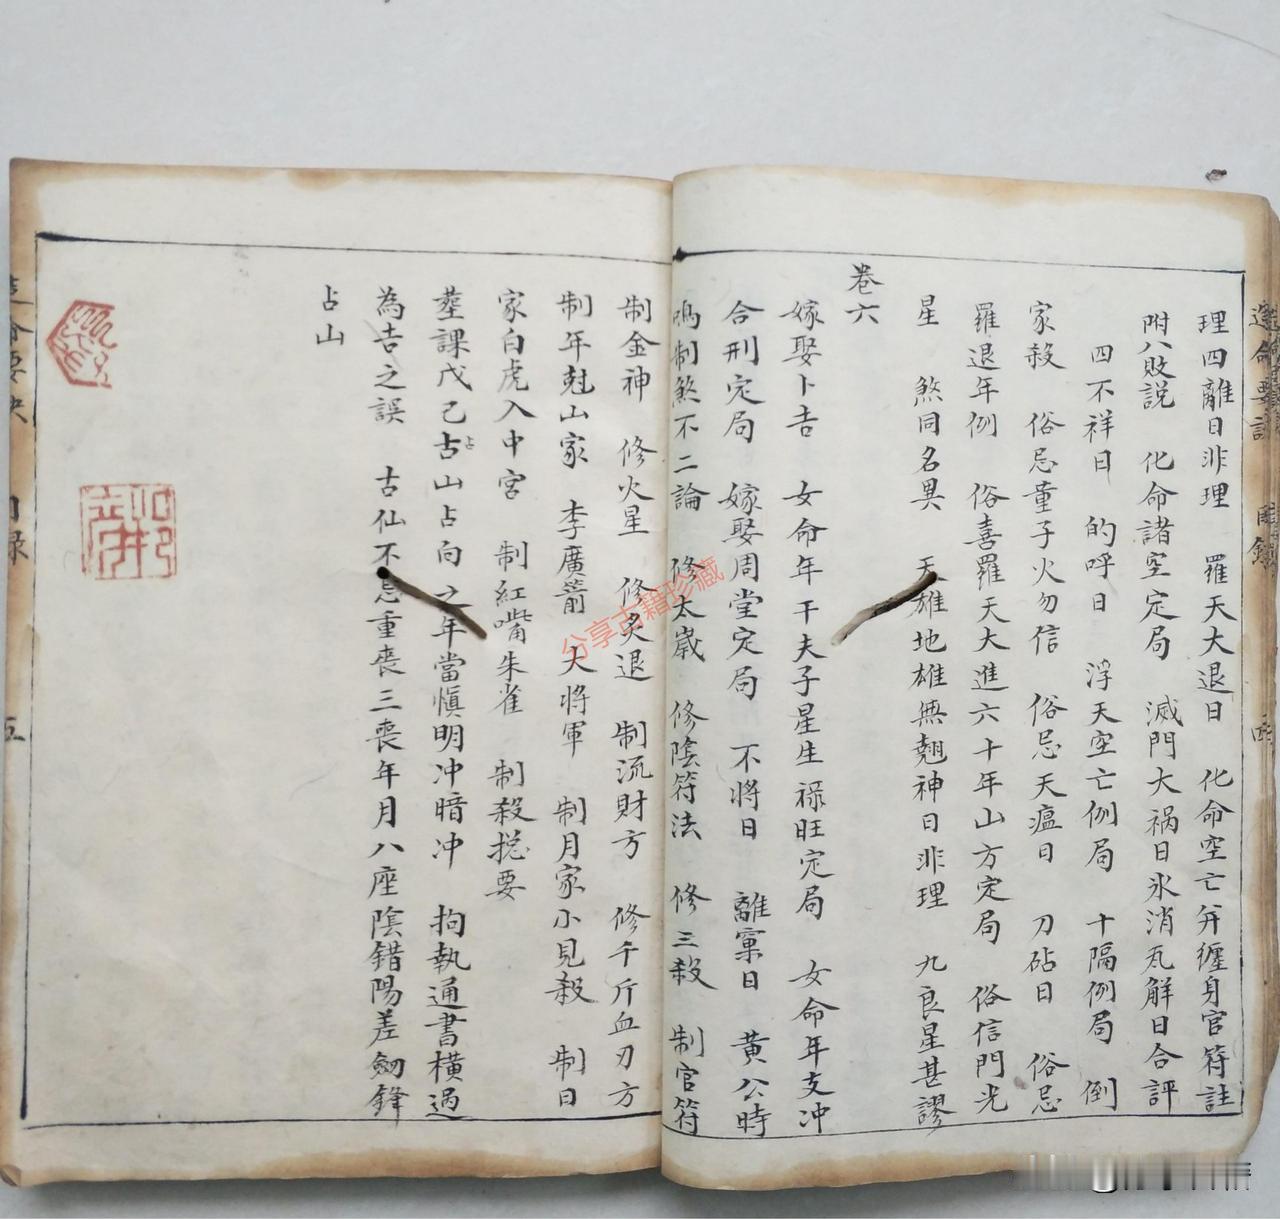 理四離日非理　羅天大退日　化命空亡并纏身官符註
附八敗説　化命諸空定局　滅門大禍日氷消瓦解日合評
四不祥日　的呼日　浮天空亡例局　十隔例局　倒
家殺　俗忌童子火勿信　俗忌天瘟日　刀砧日　俗忌
羅退年例　俗喜羅天大進六十年山方定局　俗信門光
星　煞同名異　天雄地雄無翹神日非理　九良星甚謬
卷六
嫁娶卜吉　女命年干夫子星生禄旺定局　女命年支冲
合刑定局　嫁娶周堂定局　不將日　離窠日　黄公時
鳴制煞不二論　修太歲　修陰符法　修三殺　制官符
制金神　修火星　修炙退　制流財方　修千斤血刃方
制年尅山家　李廣箭　大将軍　制月家小見殺　制日
家白虎入中宫　制紅嘴朱雀　制殺搃要
塟課戊己古占山占向之年當慎明冲暗冲　拘執通書横過
為吉之誤　古仙不忌重喪三喪年月八座陰錯陽差劒鋒
占山
目録
五
分享古籍珍藏